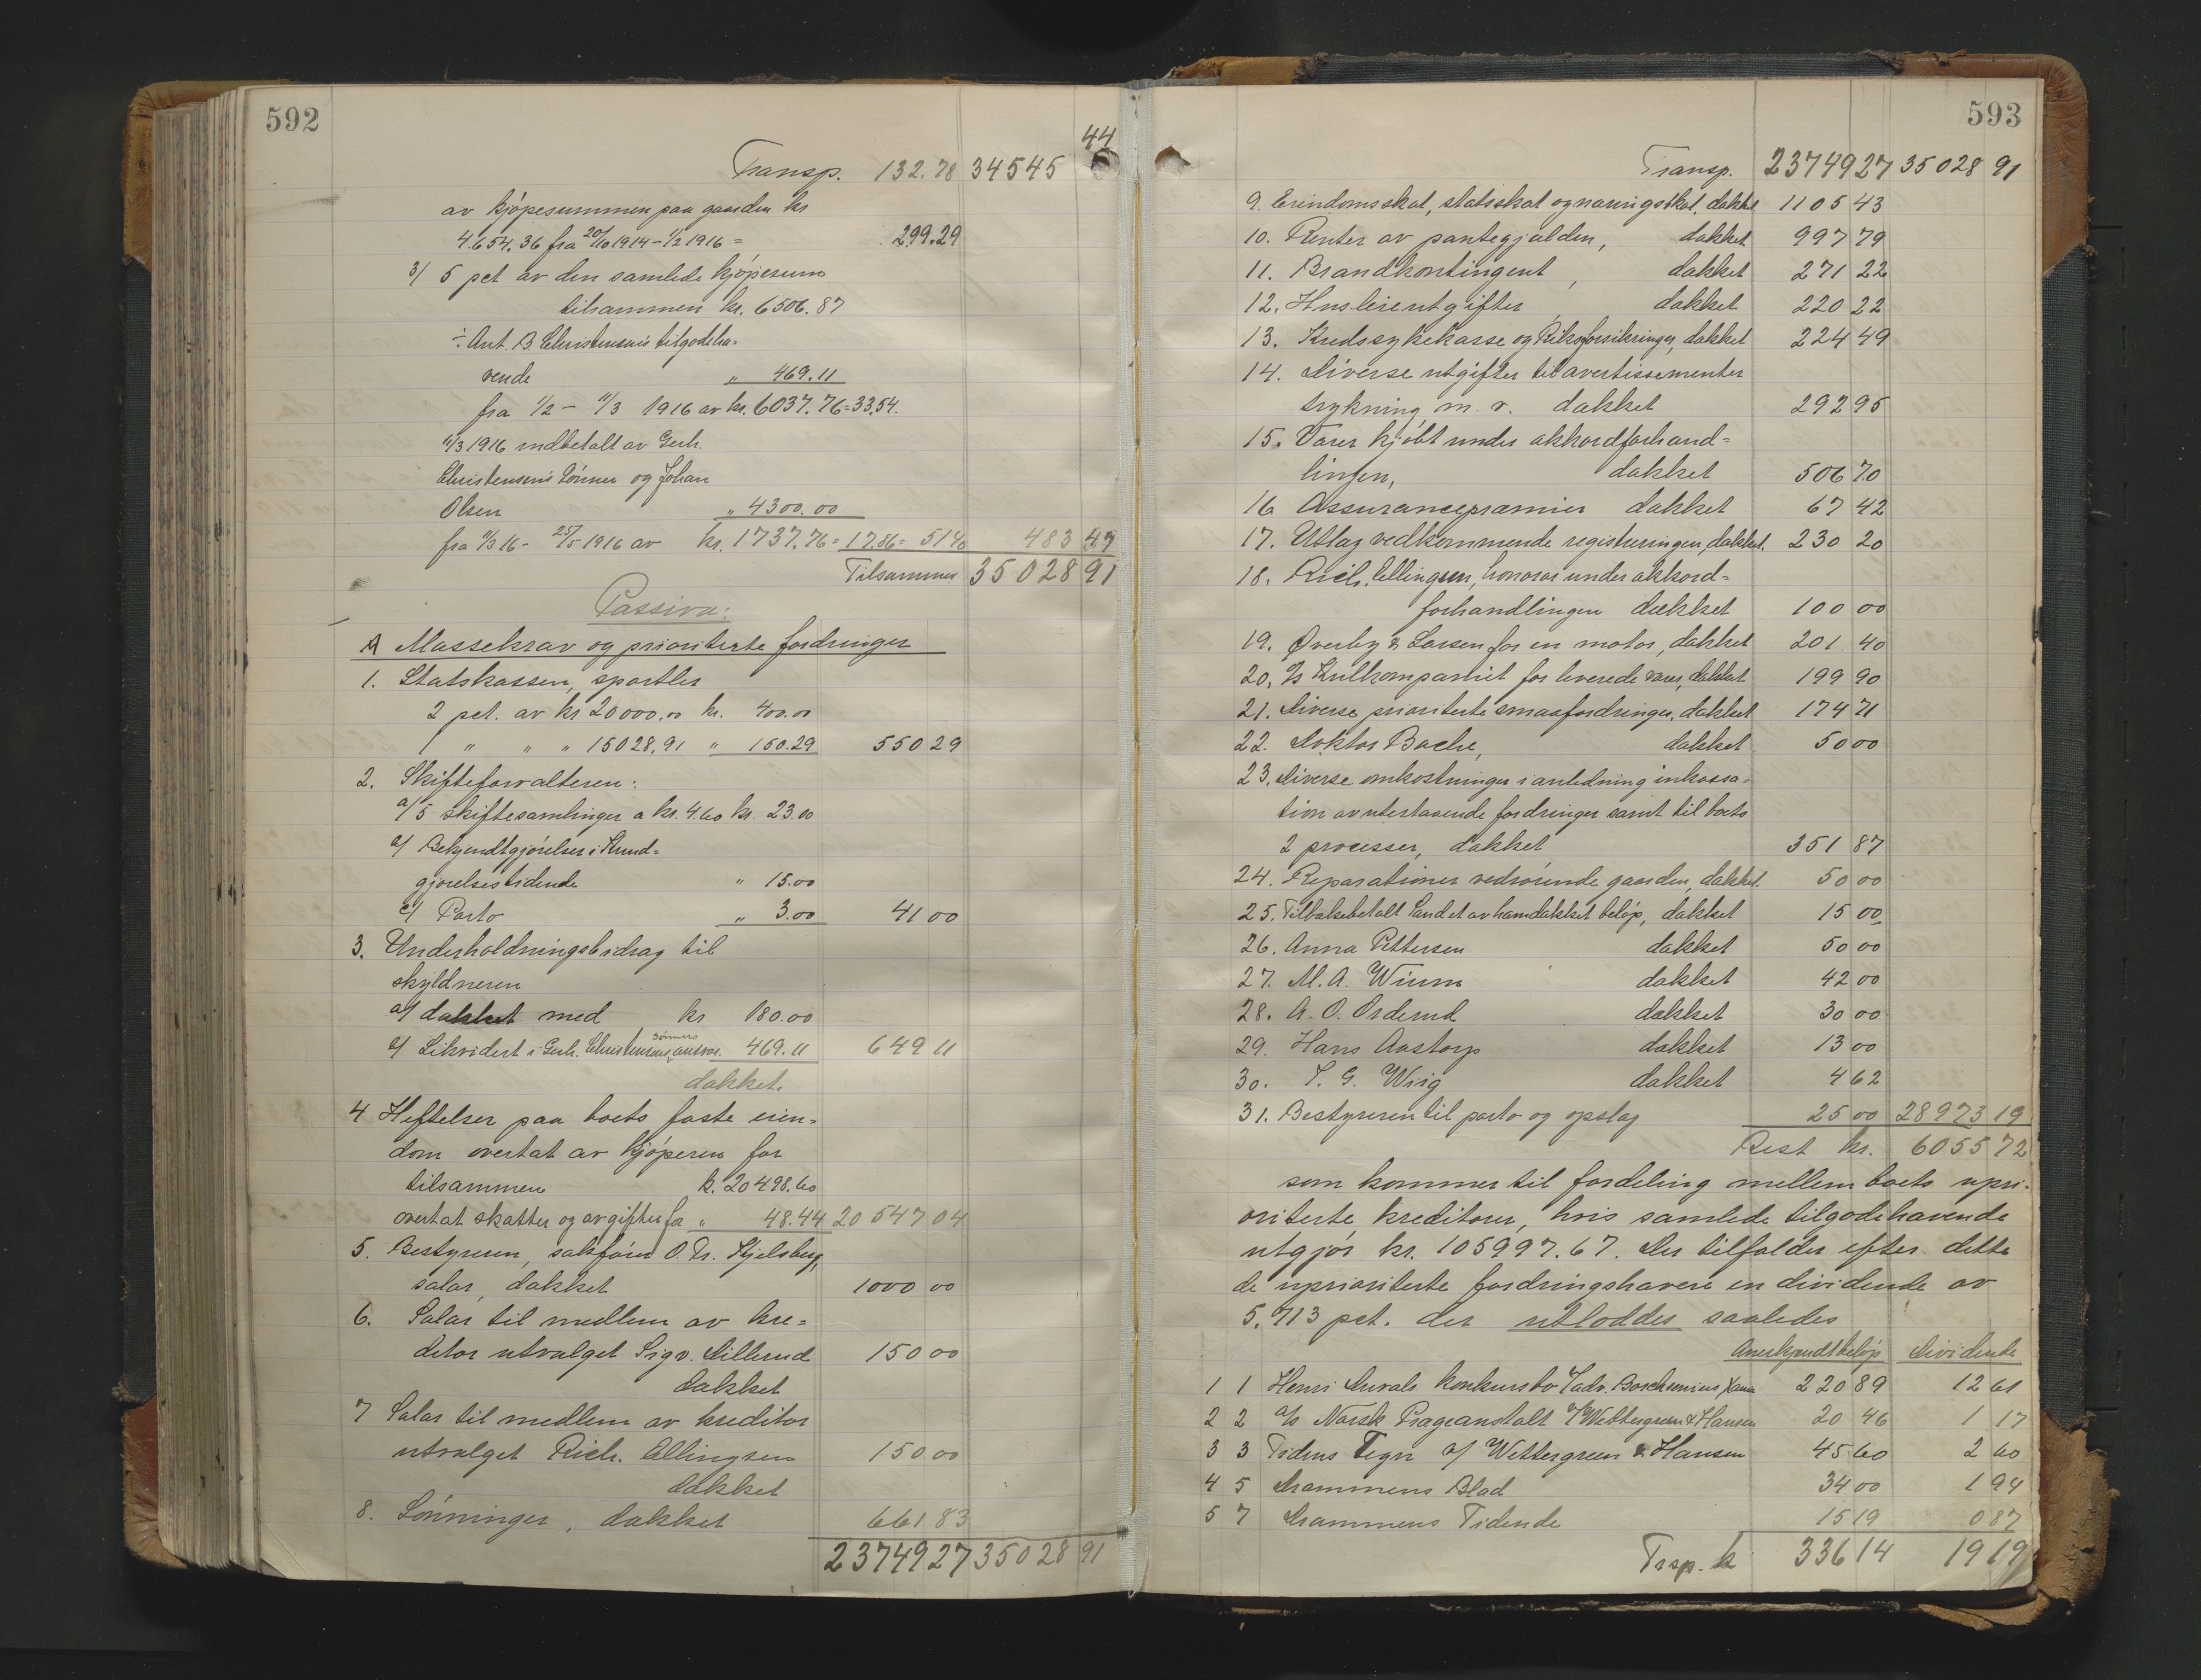 592
44
Transp. 132.78 34545
av kjøpesummen paa gaarden kr
4.654.36 fra 20/10 1914 – 1/2 1916 = 299.29
3/ 5 pct av den samlede kjøpesum
tilsammen kr. 6506.87
÷ Ant. B. Christensens tilgodeha-
vende " 469.11
fra 1/2 – 11/3 1916 av kr. 6037.76 = 33.54.
11/3 1916 indbetalt av Gerh.
Christensens Sønner og Johan
Olsen " 4300.00
fra 11/3 16 – 25/5 1916 av kr. 1737.76 = 17.86 = 51 % 483 47
Tilsammen 35028 91
Passiva:
A Massekrav og prioriterte fordringer
1. Statskassen, sportler
2 pct. av kr 20000.00 kr. 400.00
1 " " " 15028.91 " 150.29 550 29
2. Skifteforvalteren:
a/ 5 skiftesamlinger a kr. 4.60 kr. 23.00
b/ Bekjendtgjørelser i Kund-
gjørelsestidende " 15.00
c/ Porto " 3.00 41 00
3. Underholdningsbidrag til
skyldneren
a/ dækket med kr 180.00
b/ Likvidert i Gerh. Christensens sønners ansvar. 469.11 649 11
dækket.
4 Heftelser paa boets faste eien-
dom overtat av kjøperen for
tilsammen k. 20498.60
overtat skatter og avgifter for " 48.44 20547 04
5. Bestyreren, sakfører O. Tr. Hjelsberg,
salær, dækket 1000 00
6. Salær til medlem av kre-
ditor utvalget Sigv. Lillerud 150 00
dækket
7 Salær til medlem av kreditor
utvalget Rich. Ellingsen 150 00
dækket
8. Lønninger, dækket 661 83
23749 27 35028 91
593
Transp. 23749 27 35028 91
9. Eiendomsskat, statsskat og næringsskat, dækket 1105 43
10. Renter av pantegjælden, dækket 997 79
11. Brandkontingent, dækket 271 22
12. Husleieutgifter, dækket 220 22
13. Kredssykekasse og Riksforsikringen, dækket 224 49
14. Diverse utgifter til avertissementer
trykning m. v. dækket 292 95
15. Varer kjøbt under akkordforhand-
lingen, dækket 506 70
16 Assurancepræmier dækket 67 42
17. Utlæg vedkommende registreringen, dækket. 230 20
18. Rich. Ellingsen, honorar under akkord-
forhandlingen dækket 100 00
19. Øverby & Larsen for en motor, dækket 201 40
20. A/s Kulkompaniet for leverede varer, dækket 199 90
21. Diverse prioriterte smaafordringer, dækket 174 71
22. Doktor Bache, dækket 50 00
23. Diverse omkostninger i anledning inkassa-
tion av utestaaende fordringer samt til boets
2 processer, dækket 351 87
24. Reparationer vedrørende gaarden, dækket. 50 00
25. Tilbakebetalt Sandet av ham dækket beløp, dækket 15 00
26. Anna Pettersen dækket 50 00
27. M. A. Wium dækket 42 00
28. A. O. Orderud dækket 30 00
29. Hans Aastorp dækket 13 00
30. T. G. Wiig dækket 4 62
31. Bestyreren til porto og opslag 25 00 28973 19
Rest kr. 6055 72
som kommer til fordeling mellem boets upri-
oriterte kreditorer, hvis samlede tilgodehavende
utgjør kr. 105997.67. Der tilfalder efter dette
de uprioriterte fordringshavere en dividende av
5.713 pct. der utloddes saaledes
Anerkjendt beløp Dividende
1 1 Henri Duvals konkursbo v/adv. Boschsenius, Xania 220 89 12 61
2 2 a/s Norsk Prægeanstalt v/ Wettergreen & Hansen 20 46 1 17
3 3 Tidens Tegn v/ Wettergreen & Hansen 45 60 2 60
4 5 Drammens Blad 34 00 1 94
5 7 Drammens Tidende 15 19 0 87
Trsp. k 336 14 19 19